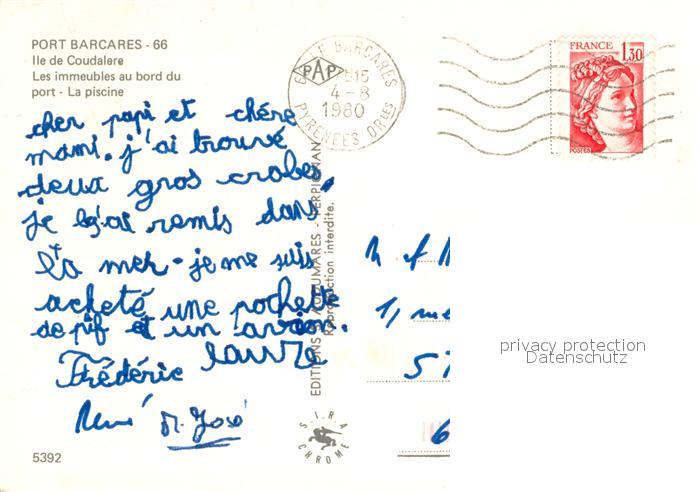 PORT BARCARES - 66
Ile de Coudalere
Les immeubles au bord du
port - La piscine
cher papi et chère
mami. j'ai trouvé
deux gros crabes,
je les ai remis dans
la mer. je me suis
acheté une pochette
de pif et un avion.
Frédéric laure
René M. José
5392
EDITIONS
PERPIGNAN
Reproduction interdite.
S.I.R.A.
CHROME
LE BARCARES
PAP
15
4-8
1980
PYRENEES ORles
FRANCE 1,30
POSTES
M et M
1,
5
6
privacy protection
Datenschutz